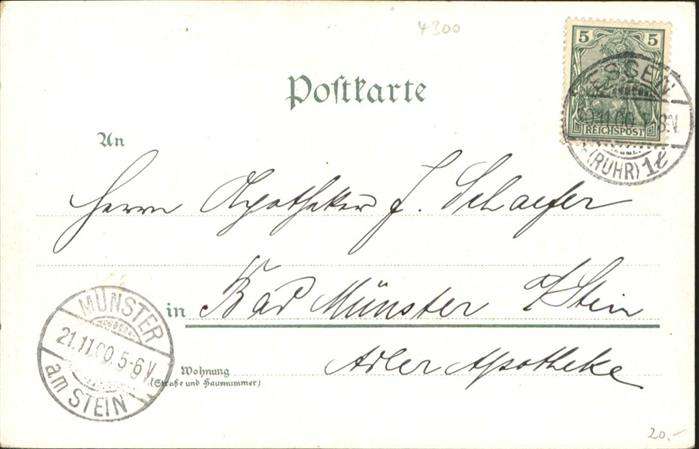 4300
5 5
REICHSPOST
ESSEN
11.00
(RUHR) 1e
Postkarte
An
Herrn Apotheker J. Schaefer
in Bad Münster a/Stein
Wohnung
(Straße und Hausnummer)
Adler Apotheke
MÜNSTER
21.11.00.5-6V
am STEIN
20.-